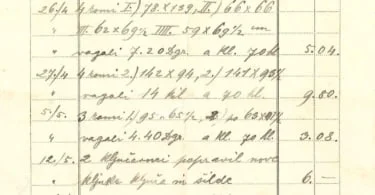 26./4. 4 romi I.) 78 X 139, II.) 66 X 66
III. 62 X 69½ IIII. 59 X 69½ cm
" vagali 7.20 kgr. a Kl. 70 hl 5.04.
27./4. 4 romi 2.) 142 X 94, 2.) 141 X 93½
" vagali 14 kil a 70 hl. 9.80.
5./5. 3 romi 1.) 95 X 65½,
" vagali 4.40 kgr. a Kl. 70 hl. 3.08.
12./5. 2. ključavnici popravil nove
" kljuke ključe in šilde 6.—